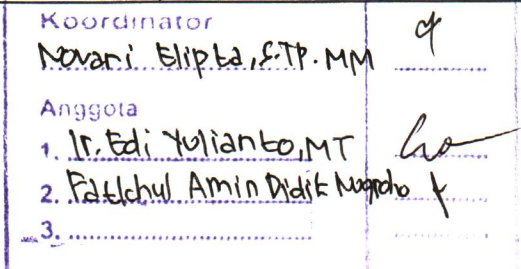 Koordinator
Novari Elipta, S.TP. MM
Anggota
1. Ir. Edi Yulianto, MT
2. Fatkhul Amin Didik Nugroho
3.